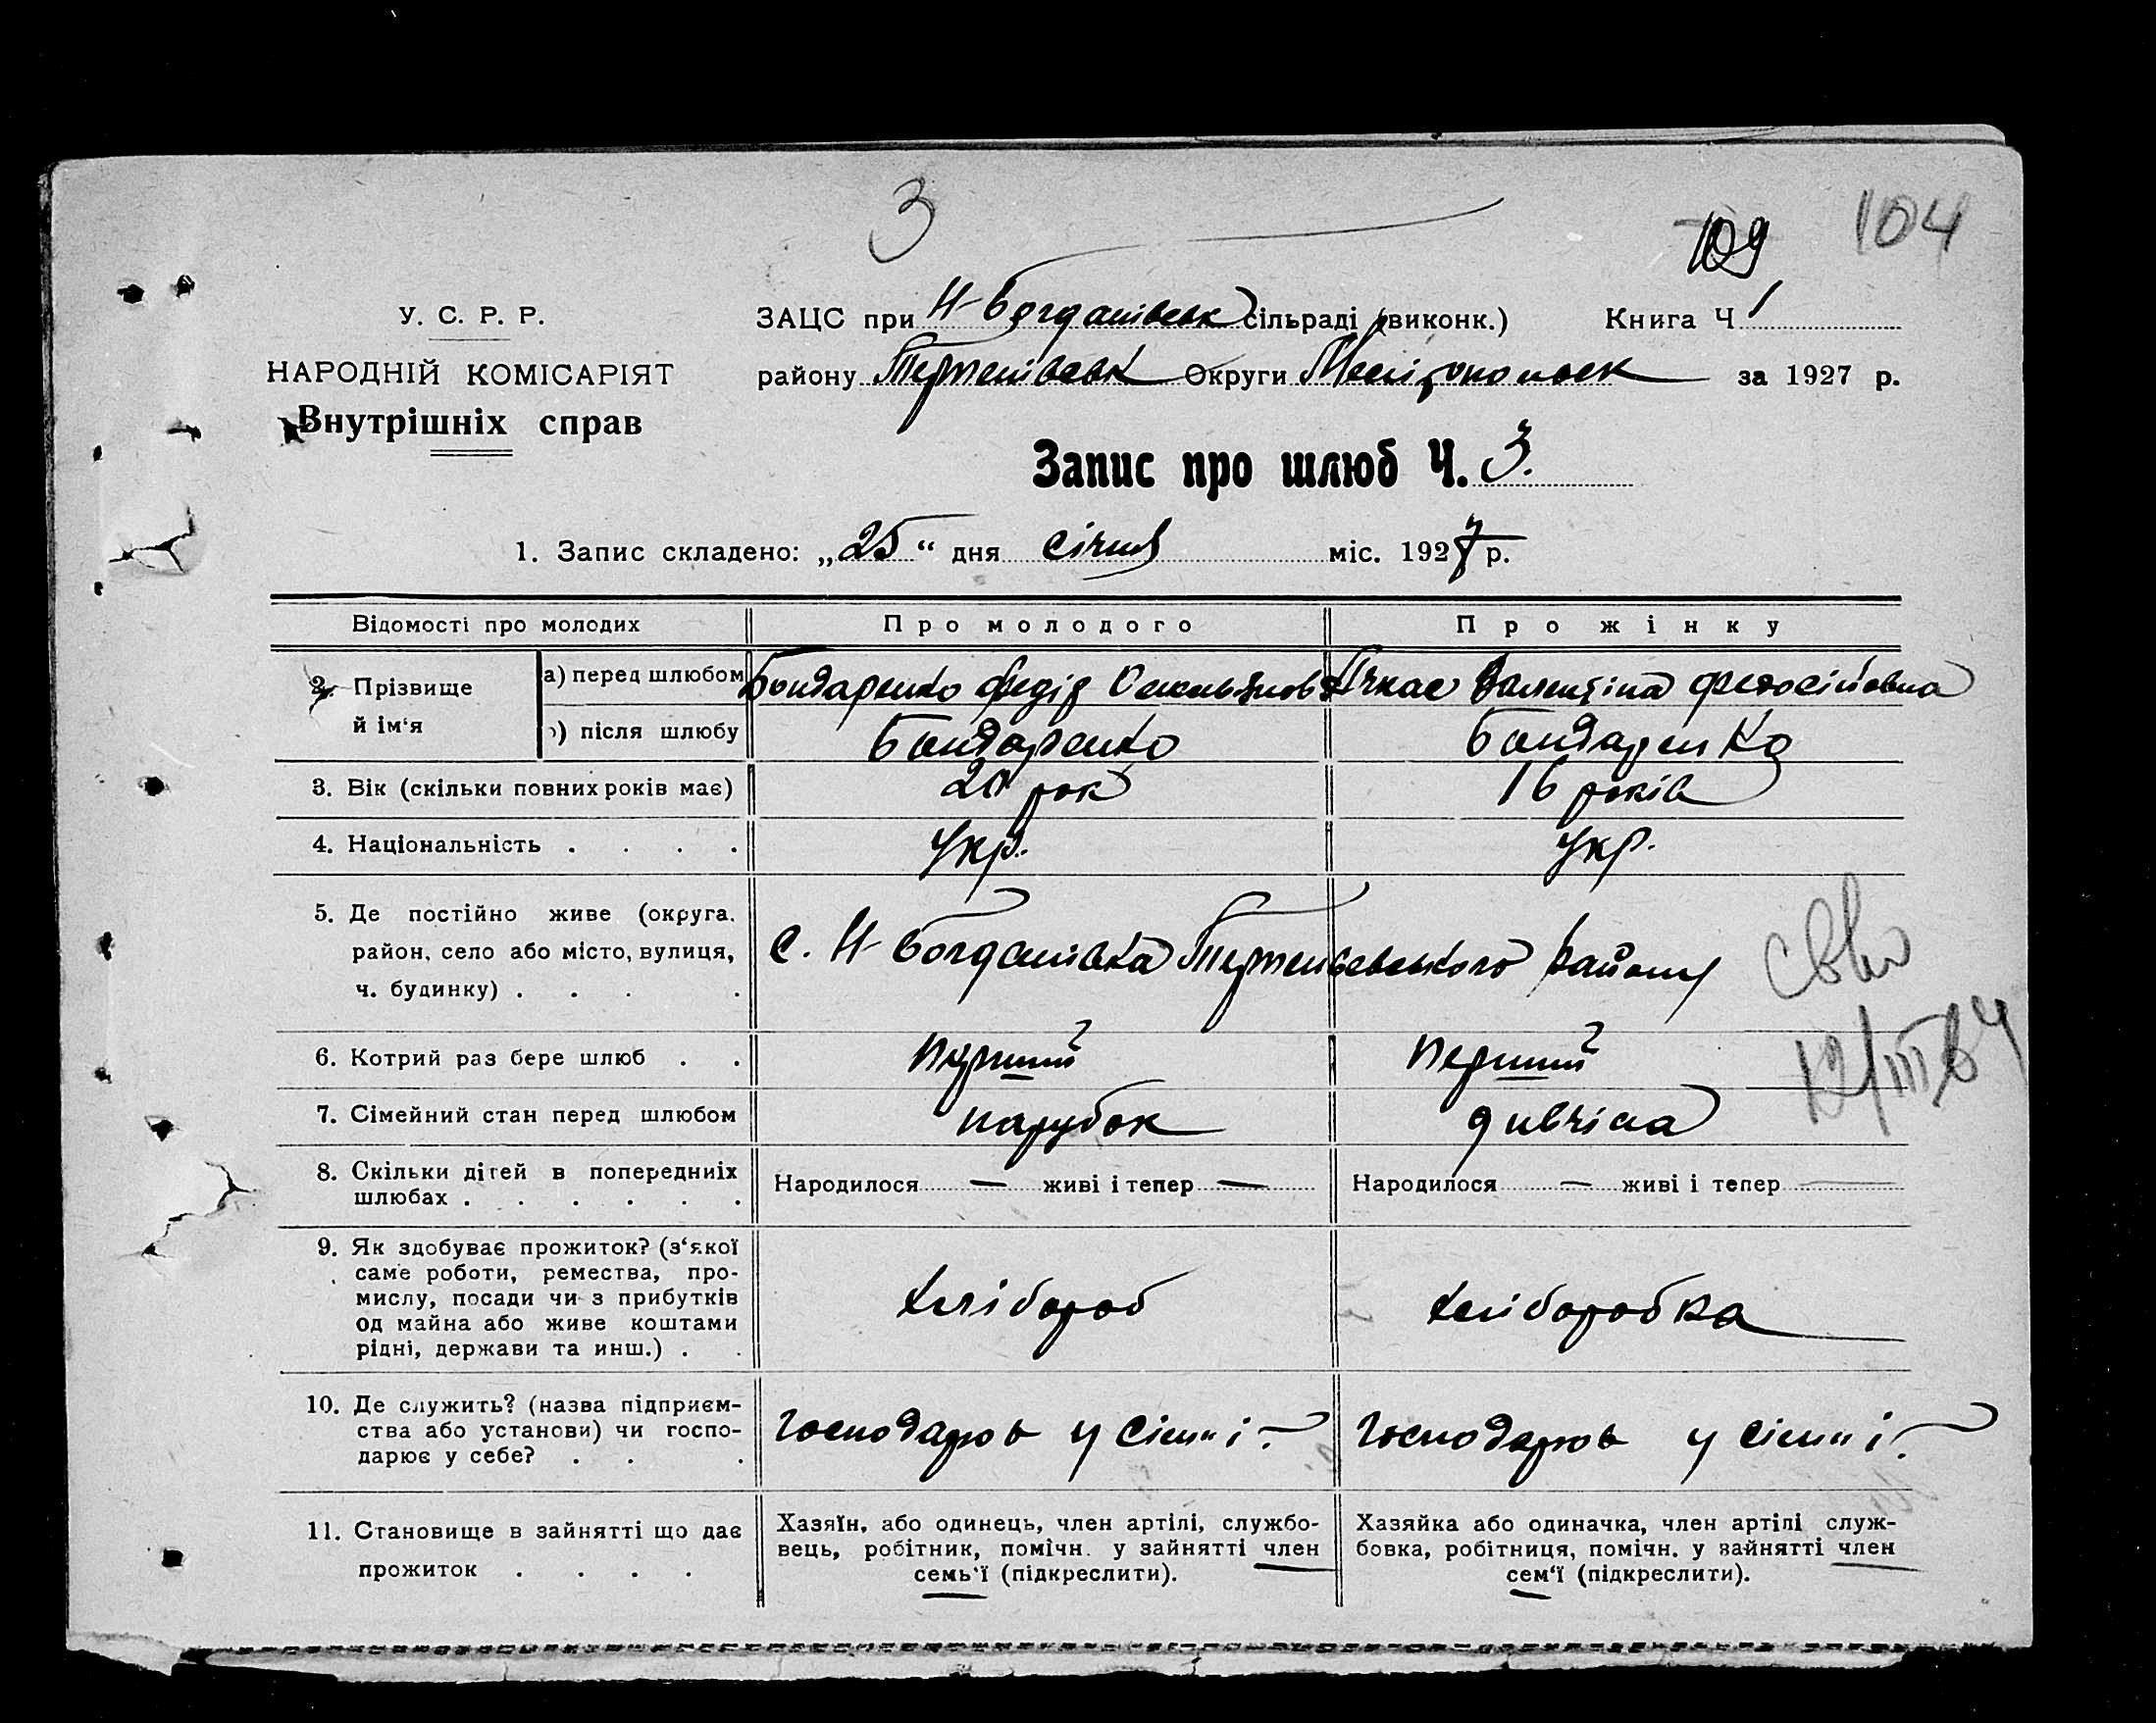 3
109 104
У. С. Р. Р.
НАРОДНІЙ КОМІСАРІЯТ
Внутрішніх справ
ЗАЦС при Н-Богданівськ сільраді (виконк.) Книга Ч 1
району Терпенівськ Округи Мелітопольск за 1927 р.
Запис про шлюб Ч. 3.
1. Запис складено: „25“ дня січня міс. 1927 р.
Відомості про молодих Про молодого Про жінку
2. Прізвище й ім‘я
а) перед шлюбом Бондаренко Федір Валентіна Федосіївна
) після шлюбу Бондаренко Бондаренко
3. Вік (скільки повних років має) рок 16 років
4. Національність . . . . Укр. Укр.
5. Де постійно живе (округа,
район, село або місто, вулиця,
ч. будинку) . . . .
с. Н-Богданівка Терпенівського району
12/III 64
6. Котрий раз бере шлюб . . перший перший
7. Сімейний стан перед шлюбом парубок дивчіна
8. Скільки дітей в попередниіх
шлюбах . . . . . .
Народилося — живі і тепер — Народилося — живі і тепер —
9. Як здобуває прожиток? (з‘якої
саме роботи, ремества, про-
мислу, посади чи з прибутків
од майна або живе коштами
рідні, держави та инш.) . .
хлібороб хліборобка
10. Де служить? (назва підприєм-
ства або установи) чи госпо-
дарює у себе? . . .
господарює у сімні господарює у сімні
11. Становище в зайнятті що дає
прожиток . . . .
Хазяїн, або одинець, член артілі, службо-
вець, робітник, помічн. у зайнятті член
семь‘ї (підкреслити).
Хазяйка або одиначка, член артілі служ-
бовка, робітниця, помічн. у зайнятті член
сем‘ї (підкреслити).